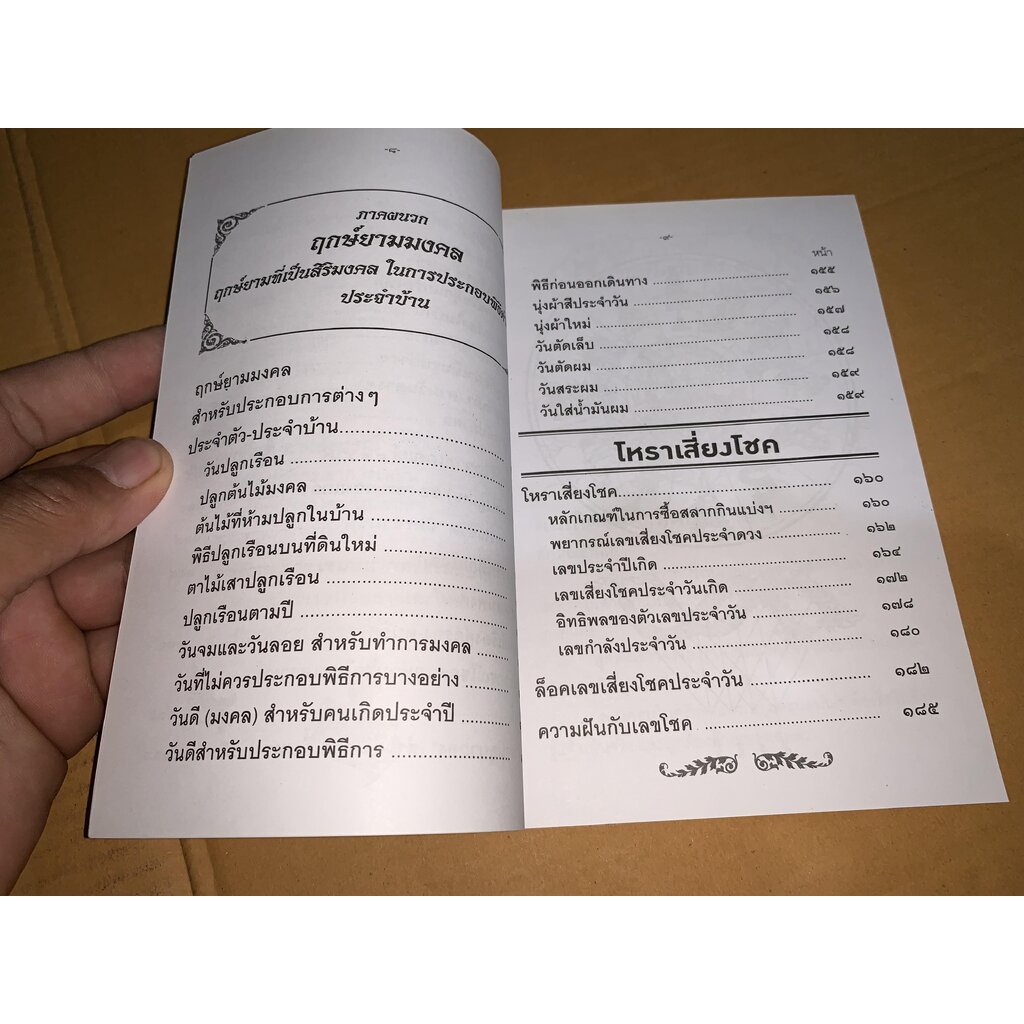 -๘-
ภาคผนวก
ฤกษ์ยามมงคล
ฤกษ์ยามที่เป็นสิริมงคล ในการประกอบพิธี
ประจำบ้าน
ฤกษ์ยามมงคล
สำหรับประกอบการต่างๆ
ประจำตัว-ประจำบ้าน
วันปลูกเรือน
ปลูกต้นไม้มงคล
ต้นไม้ที่ห้ามปลูกในบ้าน
พิธีปลูกเรือนบนที่ดินใหม่
ตาไม้เสาปลูกเรือน
ปลูกเรือนตามปี
วันจมและวันลอย สำหรับทำการมงคล
วันที่ไม่ควรประกอบพิธีการบางอย่าง
วันดี (มงคล) สำหรับคนเกิดประจำปี
วันดีสำหรับประกอบพิธีการ
-๙-
หน้า
พิธีก่อนออกเดินทาง ๑๕๕
นุ่งผ้าสีประจำวัน ๑๕๖
นุ่งผ้าใหม่ ๑๕๗
วันตัดเล็บ ๑๕๘
วันตัดผม ๑๕๘
วันสระผม ๑๕๙
วันใส่น้ำมันผม ๑๕๙
โหราเสี่ยงโชค
โหราเสี่ยงโชค ๑๖๐
หลักเกณฑ์ในการซื้อสลากกินแบ่งฯ ๑๖๐
พยากรณ์เลขเสี่ยงโชคประจำดวง ๑๖๒
เลขประจำปีเกิด ๑๖๔
เลขเสี่ยงโชคประจำวันเกิด ๑๗๒
อิทธิพลของตัวเลขประจำวัน ๑๗๘
เลขกำลังประจำวัน ๑๘๐
ล็อคเลขเสี่ยงโชคประจำวัน ๑๘๒
ความฝันกับเลขโชค ๑๘๕